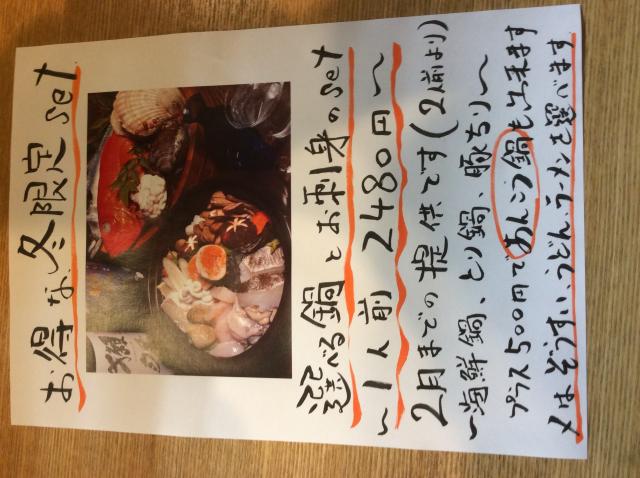 お得な冬限定set
選べる鍋とお刺身のset
〜1人前 2480円〜
2月までの提供です(2人前より)
〜海鮮鍋、とり鍋、豚ちり〜
プラス500円であんこう鍋も出来ます
〆はぞうすい、うどん、ラーメンを選べます